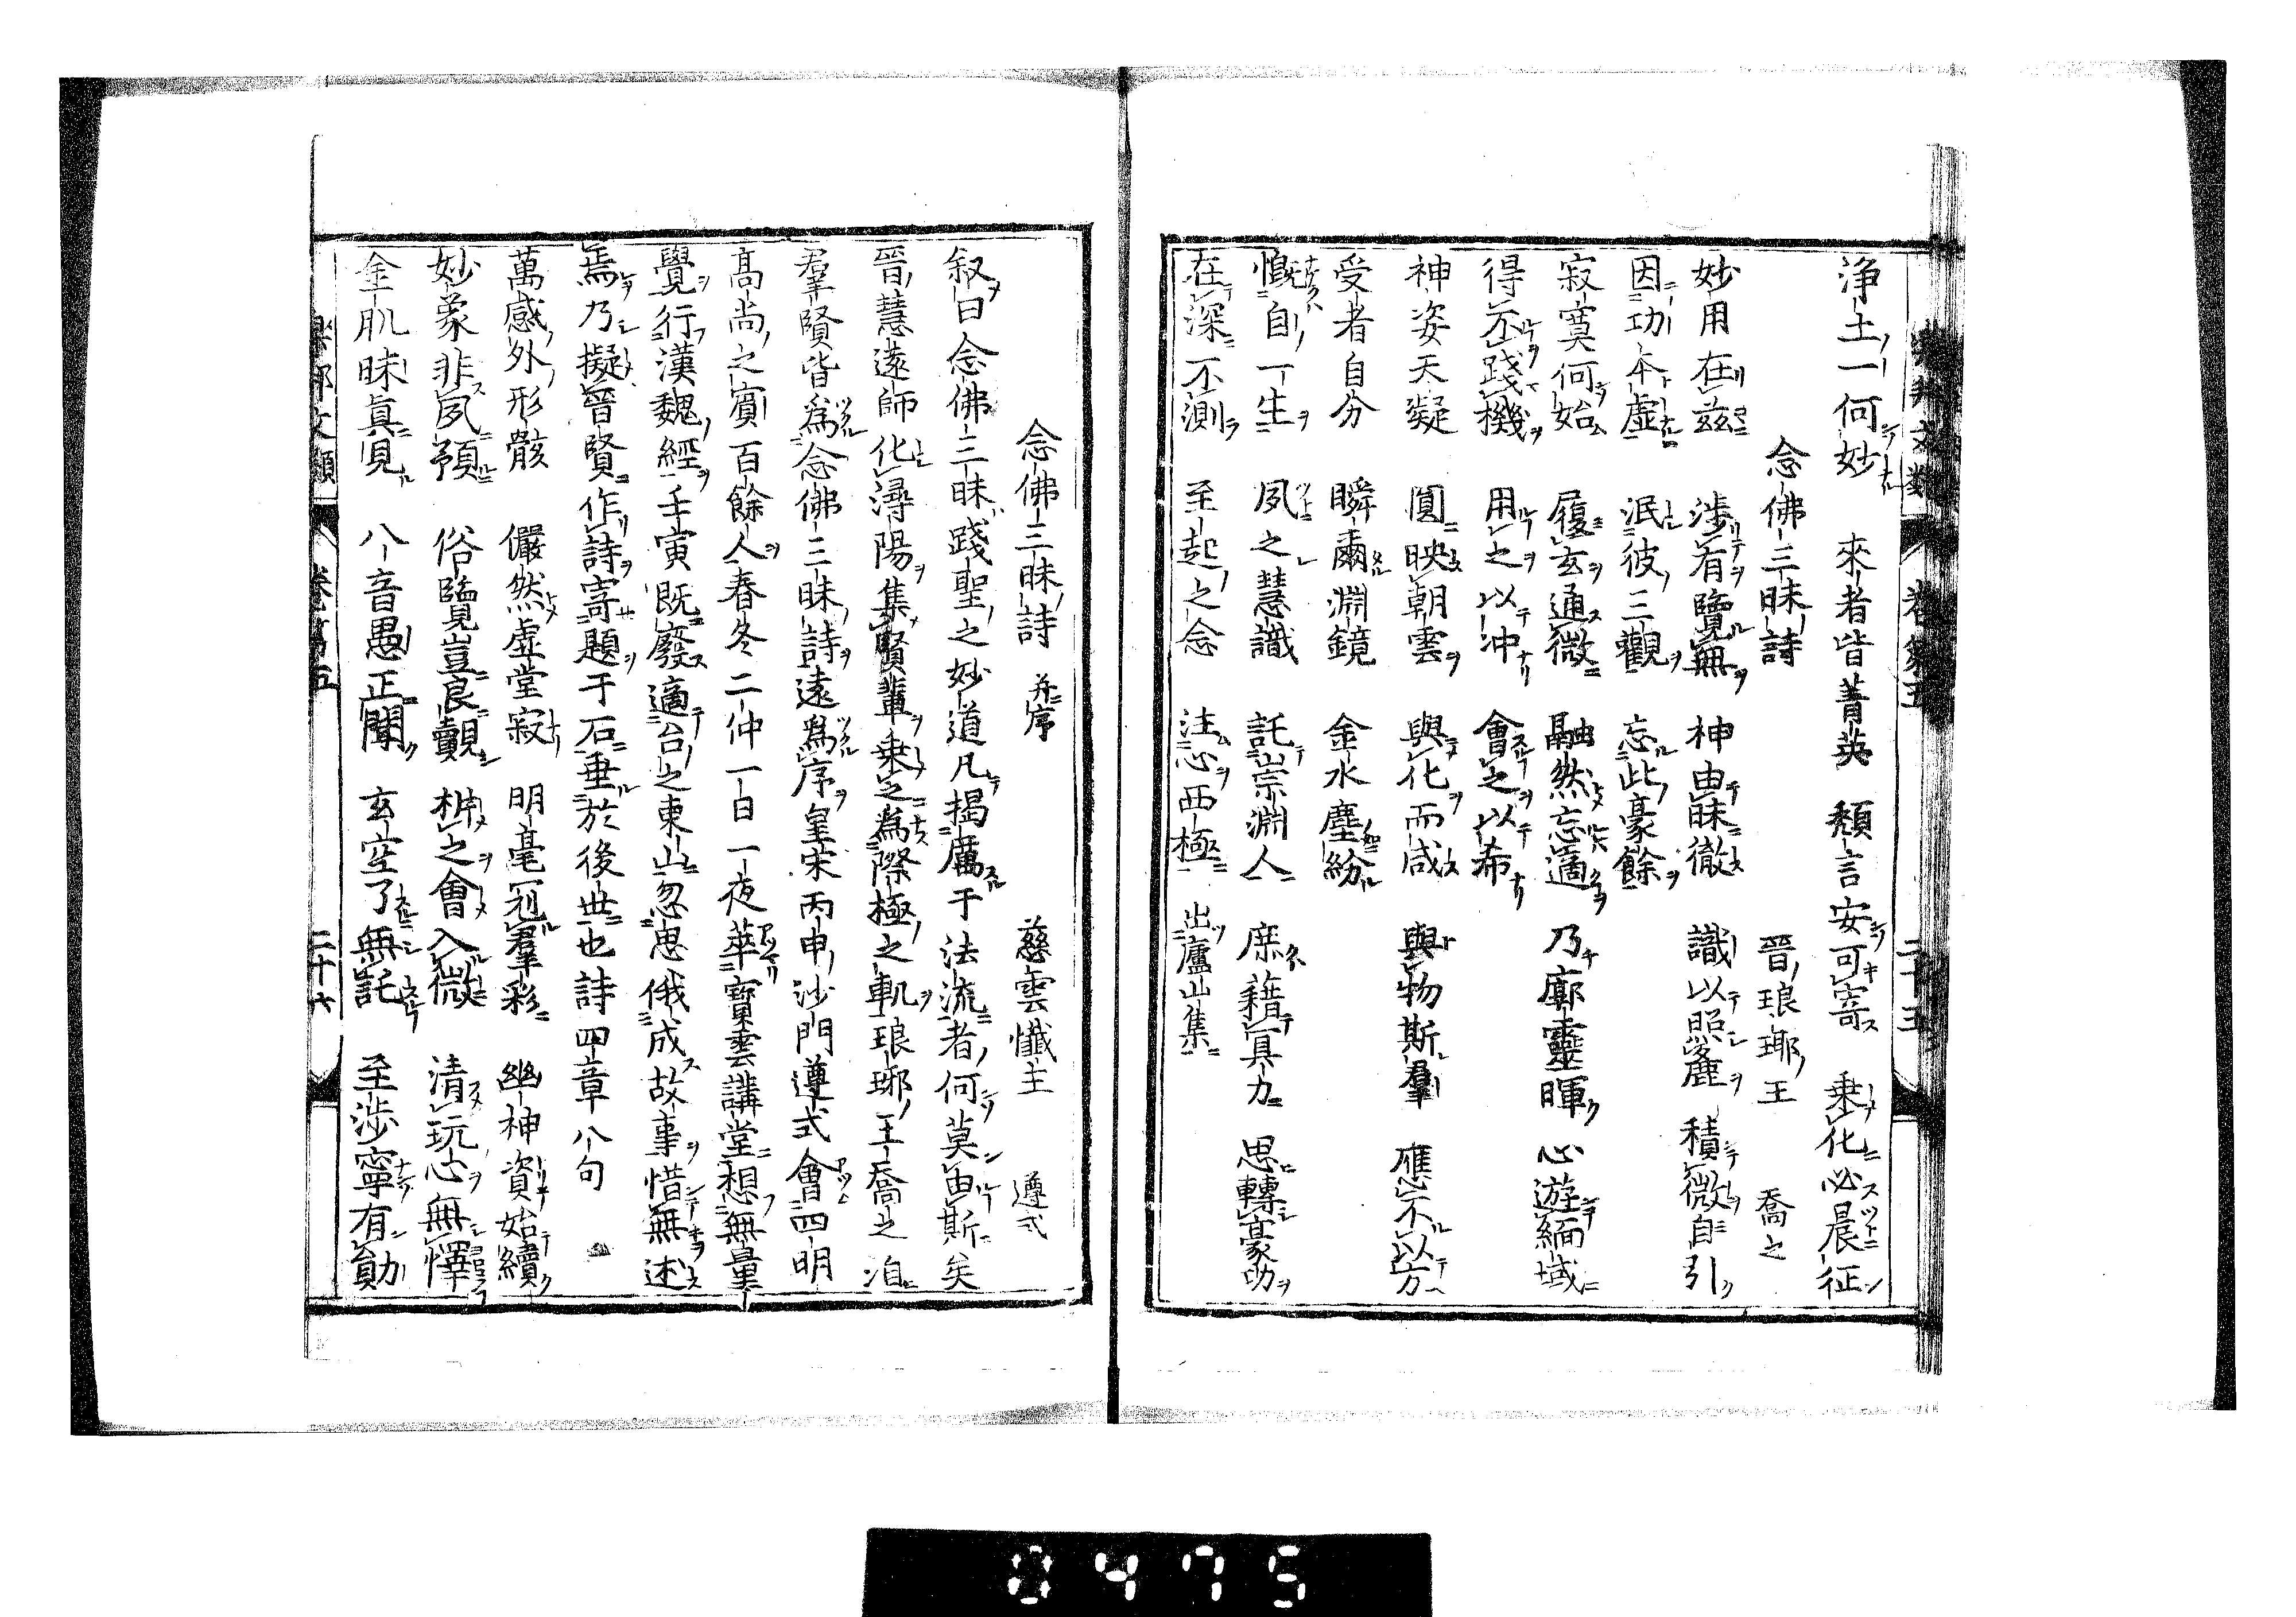 淨土一何妙 來者皆菁英 頹言安可寄 乗化必晨征
念佛三昧詩 晉琅琊王 喬之
妙用在兹 渉有覽無 神由昧徹 識以照麁 積微自引
因功本虚 泯彼三觀 忘此豪餘
寂寞何始 履玄通微 融然忘適 乃廓靈暉 心遊緬域
得不踐機 用之以冲 會之以希
神姿天凝 圓映朝雲 與化而感 與物斯羣 應不以方
受者自分 瞬爾淵鏡 金水塵紛
慨自一生 夙之慧識 託崇淵人 庶藉冥力 思轉豪功
在深不測 至起之念 注心西極 出廬山集
念佛三昧詩 并序 慈雲懺主 遵式
叙曰念佛三昧踐聖之妙道凡揭厲于法流者何莫由斯矣
晉慧遠師化潯陽集賢輩乗之為際極之軌琅琊王喬之洎
羣賢皆為念佛三昧詩遠為序皇宋丙申沙門遵式會四明
高尚之賓百餘人春冬二仲一日一夜萃寶雲講堂想無量
覺行漢魏經壬寅既廢適台之東山忽思俄成故事惜無述
焉乃擬晉賢作詩寄題于石垂於後世也詩四章八句
萬感外形骸 儼然虚堂寂 明毫冠羣彩 幽神資始績
妙象非夙預 俗覽豈良覿 神之會入微 清玩心無懌
金肌昧眞見 八音愚正聞 玄空了無託 至渉寧有勛
樂邦文類 卷第五 二十五
樂邦文類 卷第五 二十六
0475